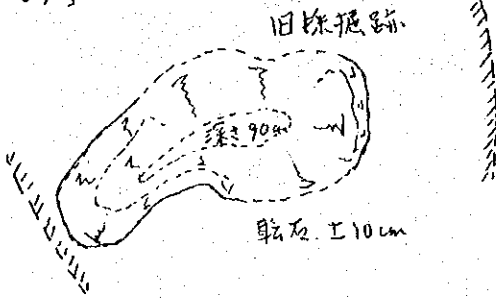 旧採掘跡
深さ90cm
転石 ±10cm